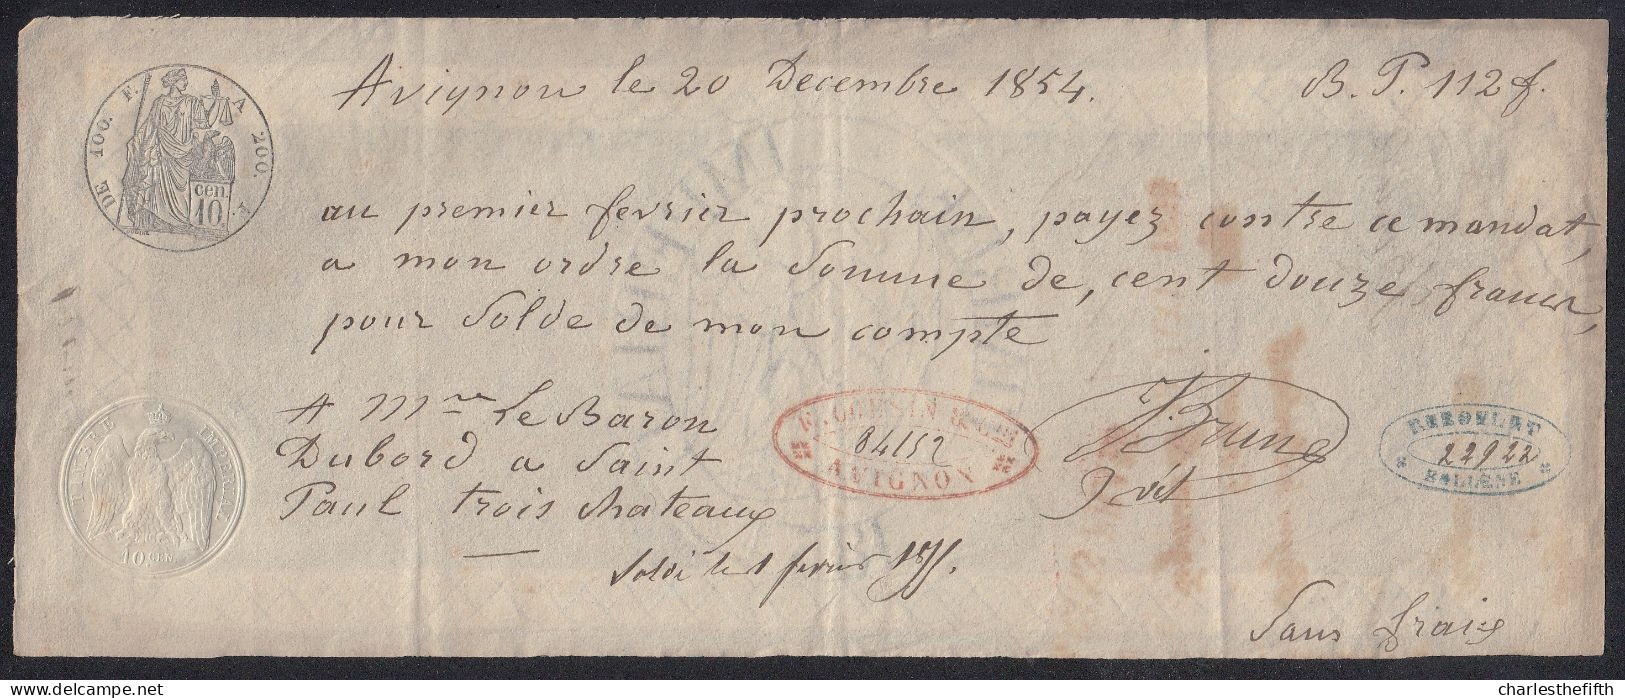 Avignon le 20 Decembre 1854. B. P. 112 f.
DE 100. F. A 200. F.
cen.
10.
au premier fevrier prochain, payez contre ce mandat,
a mon ordre la Somme de, cent douze francs,
pour Solde de mon compte
A Mr Le Baron
Dubord a Saint
Paul trois chateaux
TIMBRE IMPERIAL
10. CEN.
& CIE
04152
AVIGNON
J. Brun
22922
BOLLÈNE
Soldé le 1 fevrier 1855.
Sans fraix
delcampe.net
charlesthefifth